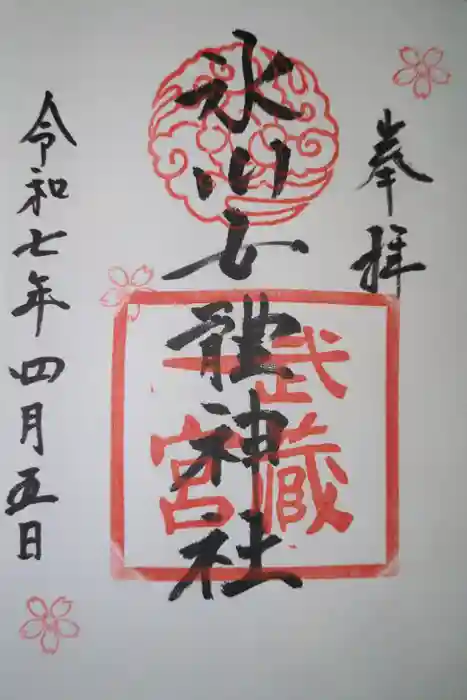 奉拝
氷川女體神社
武蔵
一宮
令和七年四月五日